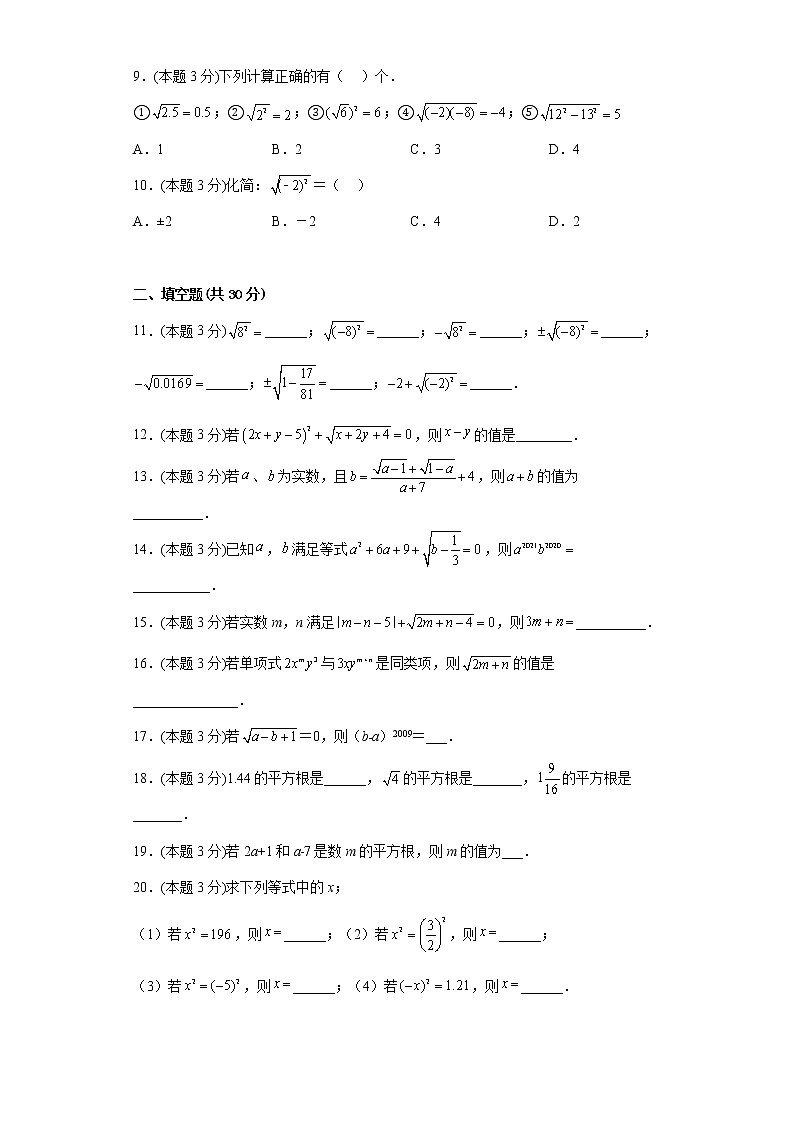 9．(本题 3 分)下列计算正确的有（　）个．
①√2.5 = 0.5；②√2² = 2；③(√6)² = 6；④√(−2)(−8) = −4；⑤√12² − 13² = 5
A．1 B．2 C．3 D．4
10．(本题 3 分)化简：√(﹣2)²＝（　）
A．±2 B．－2 C．4 D．2
二、填空题(共 30 分)
11．(本题 3 分)√8² = ______；√(−8)² = ______；−√8² = ______；±√(−8)² = ______；
−√0.0169 = ______；±√(1 − 17/81) = ______；−2 + √(−2)² = ______．
12．(本题 3 分)若(2x + y − 5)² + √(x + 2y + 4) = 0，则 x − y 的值是________．
13．(本题 3 分)若 a、b 为实数，且 b = (√(a−1) + √(1−a))/(a+7) + 4，则 a + b 的值为
__________．
14．(本题 3 分)已知 a，b 满足等式 a² + 6a + 9 + √(b − 1/3) = 0，则 a²⁰²¹b²⁰²⁰ =
___________．
15．(本题 3 分)若实数 m，n 满足 |m − n − 5| + √(2m + n − 4) = 0，则 3m + n = __________．
16．(本题 3 分)若单项式 2xᵐy³ 与 3xyᵐ⁺ⁿ 是同类项，则 √(2m + n) 的值是
_______________．
17．(本题 3 分)若 √(a − b + 1)＝0，则（b﹣a）²⁰⁰⁹＝___．
18．(本题 3 分)1.44 的平方根是______，√4 的平方根是_______，1 9/16 的平方根是
_______．
19．(本题 3 分)若 2a+1 和 a﹣7 是数 m 的平方根，则 m 的值为___．
20．(本题 3 分)求下列等式中的 x；
（1）若 x² = 196，则 x = ______；（2）若 x² = (3/2)²，则 x = ______；
（3）若 x² = (−5)²，则 x = ______；（4）若 (−x)² = 1.21，则 x = ______．